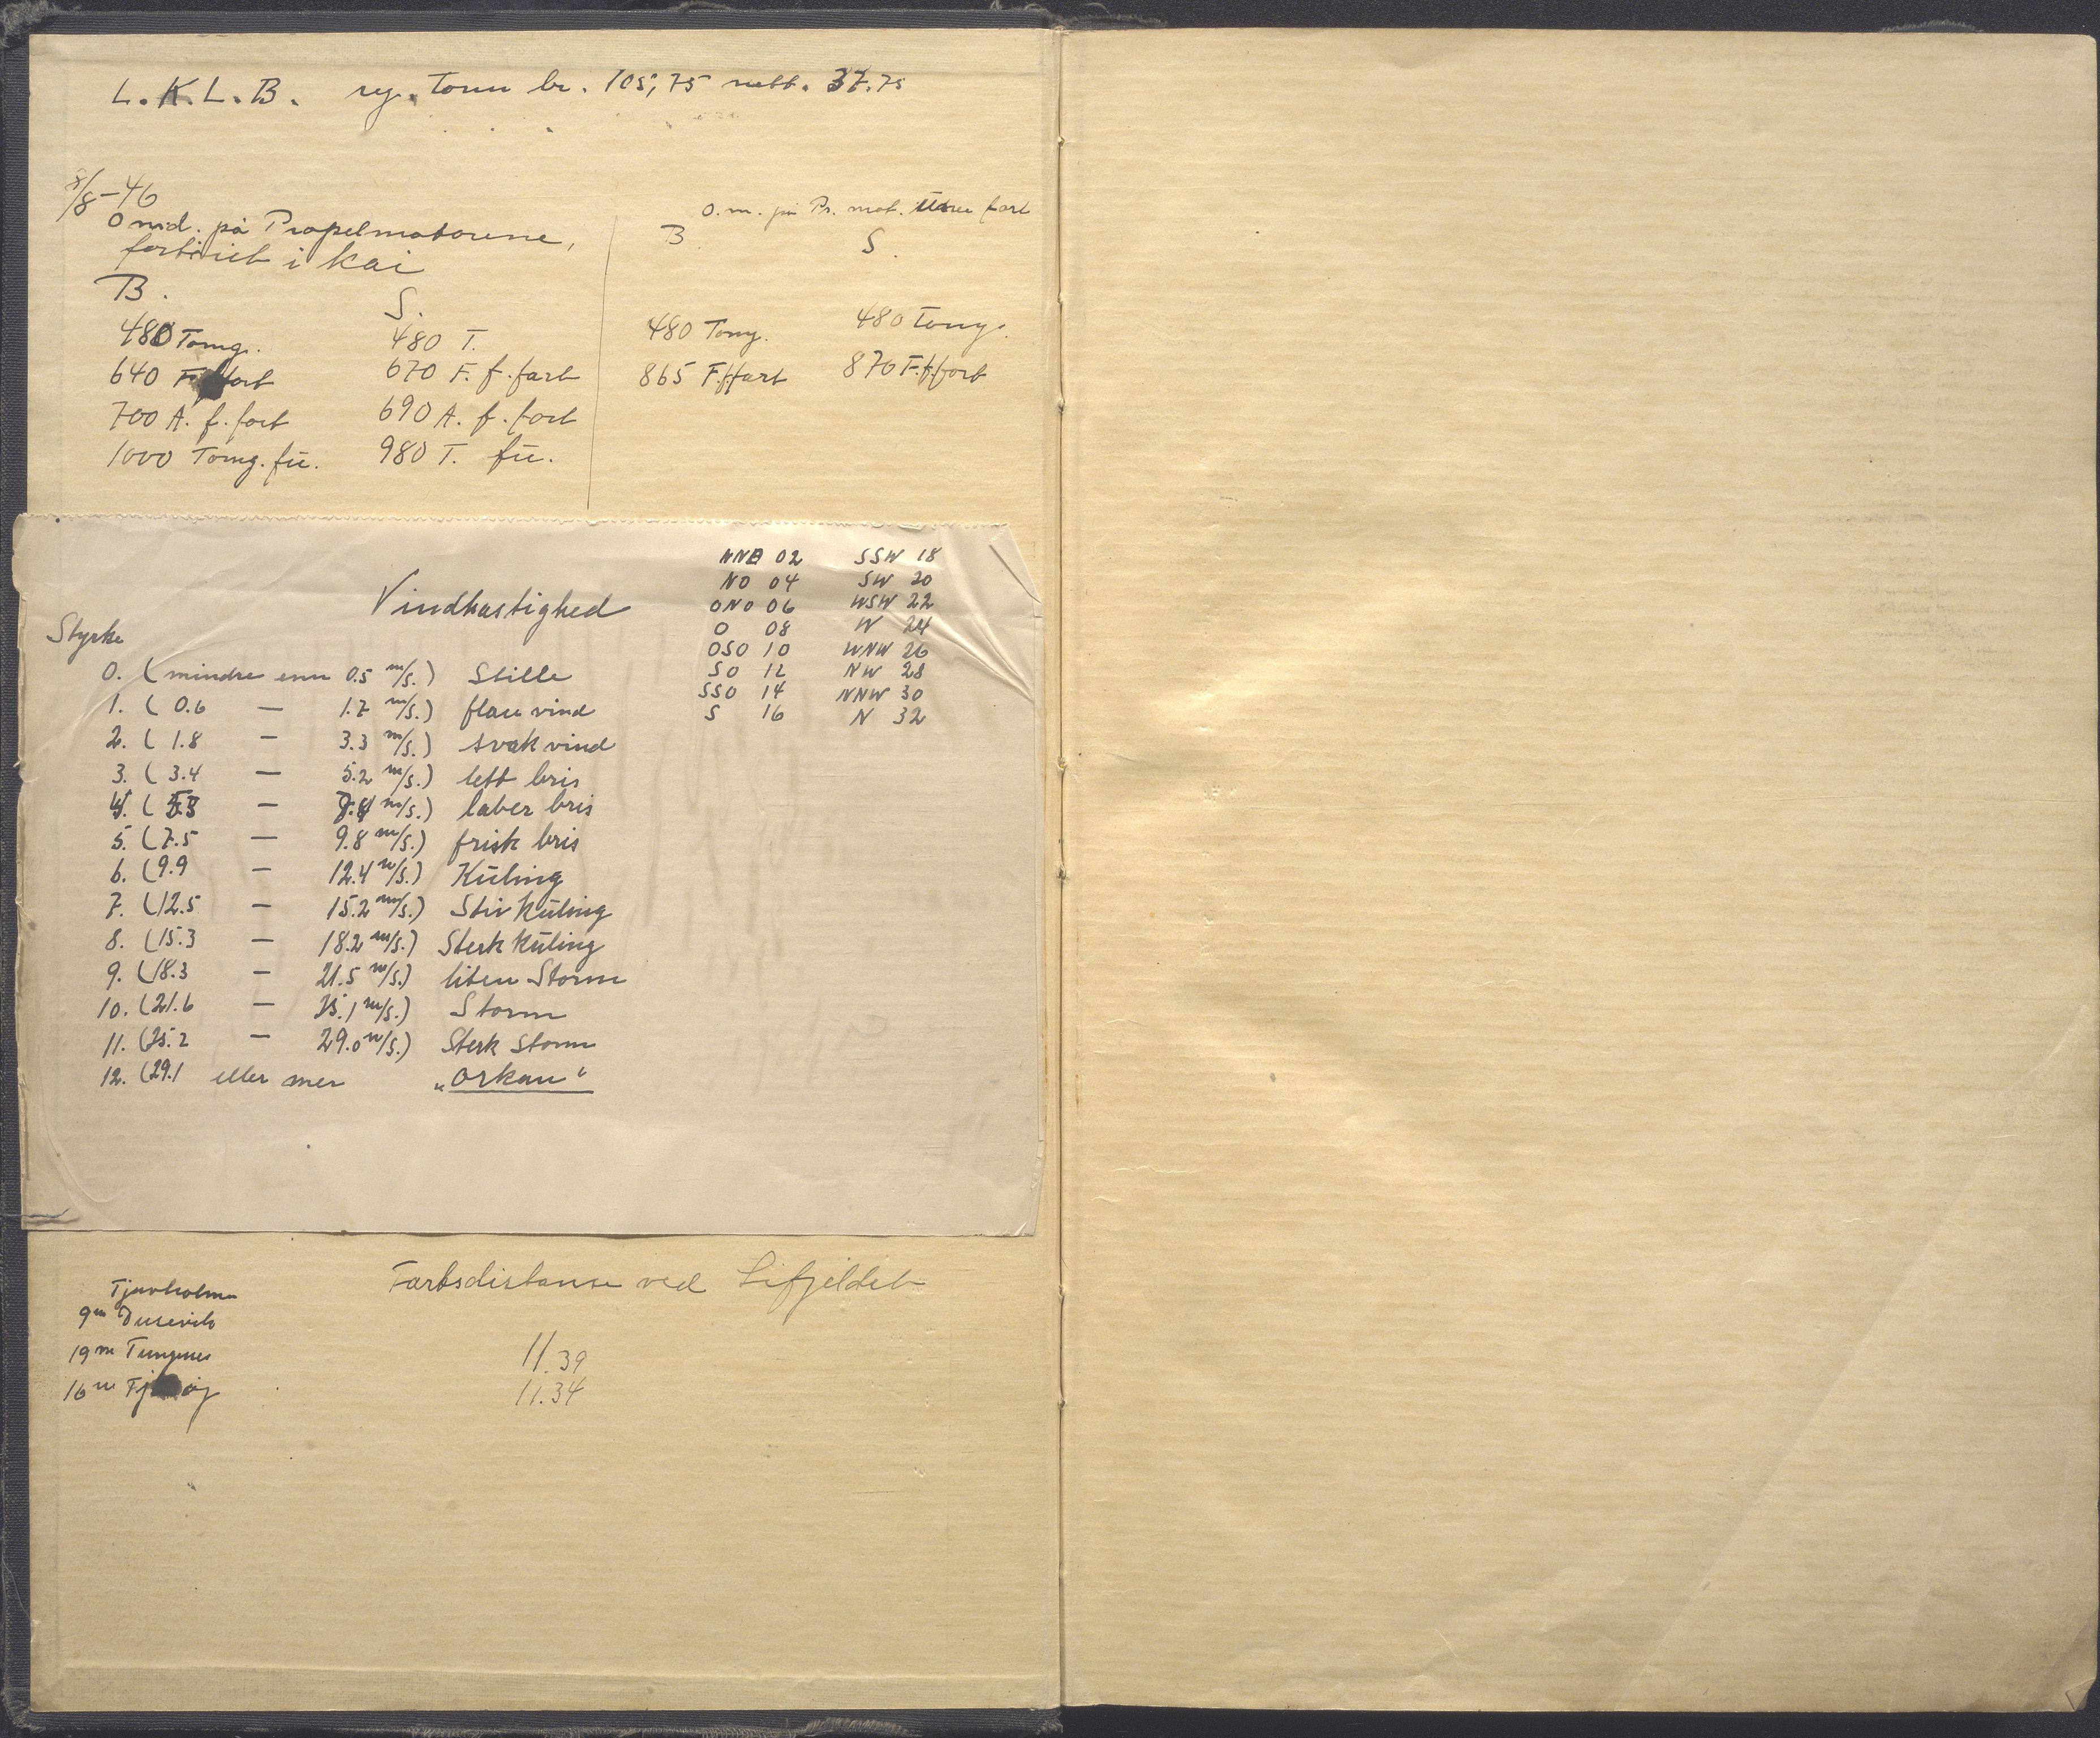 L.K.L.B. reg. Tonn br. 105,75 nett. 37.75
8/8-46
Omd. på Propelmotorene,
fortöiet i Kai
B. S.
480 Tomg. 480 T.
640 F. f. fart 670 F. f. fart
700 A. f. fart 690 A. f. fart
1000 Tomg. fü. 980 T. fü.
O.m. på Pr. mot. under fart
B S.
480 Tomg. 480 Tomg.
865 F.f.fart 870 F.f.fart
Vindhastighed
NNO 02 SSW 18
NO 04 SW 20
ONO 06 WSW 22
O 08 W 24
OSO 10 WNW 26
SO 12 NW 28
SSO 14 NNW 30
S 16 N 32
Styrke
0. (mindre enn 0.5 m/s.) Stille
1. (0.6 — 1.7 m/s.) flau vind
2. (1.8 — 3.3 m/s.) svak vind
3. (3.4 — 5.2 m/s.) lett bris
4. (5.3 — 7.4 m/s.) laber bris
5. (7.5 — 9.8 m/s.) frisk bris
6. (9.9 — 12.4 m/s.) Kuling
7. (12.5 — 15.2 m/s.) Stiv Kuling
8. (15.3 — 18.2 m/s.) Sterk Kuling
9. (18.3 — 21.5 m/s.) liten Storm
10. (21.6 — 25.1 m/s.) Storm
11. (25.2 — 29.0 m/s.) Sterk Storm
12. (29.1 eller mer „Orkan“
Fartsdistanse ved Lifjeldet
Tjuvholmen
9m Dusevik
19m Tungenes
16m
11.39
11.34